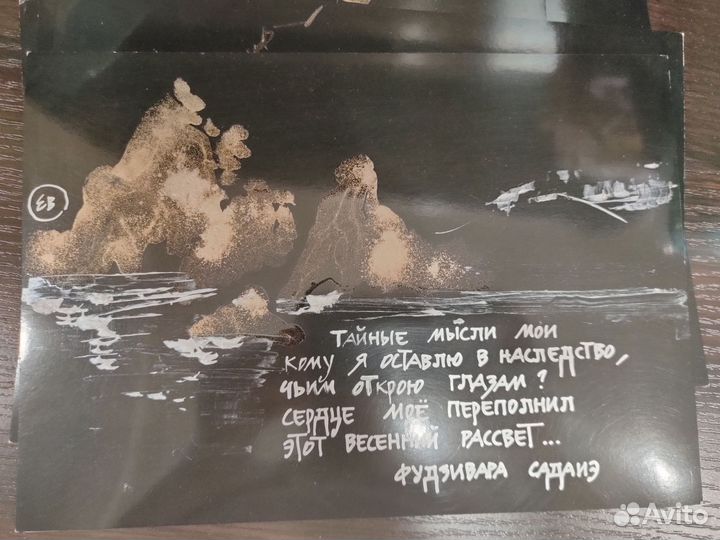 ЕВ
Тайные мысли мои
кому я оставлю в наследство,
чьим открою глазам?
Сердце моё переполнил
этот весенний рассвет...
Фудзивара Садаиэ
Avito